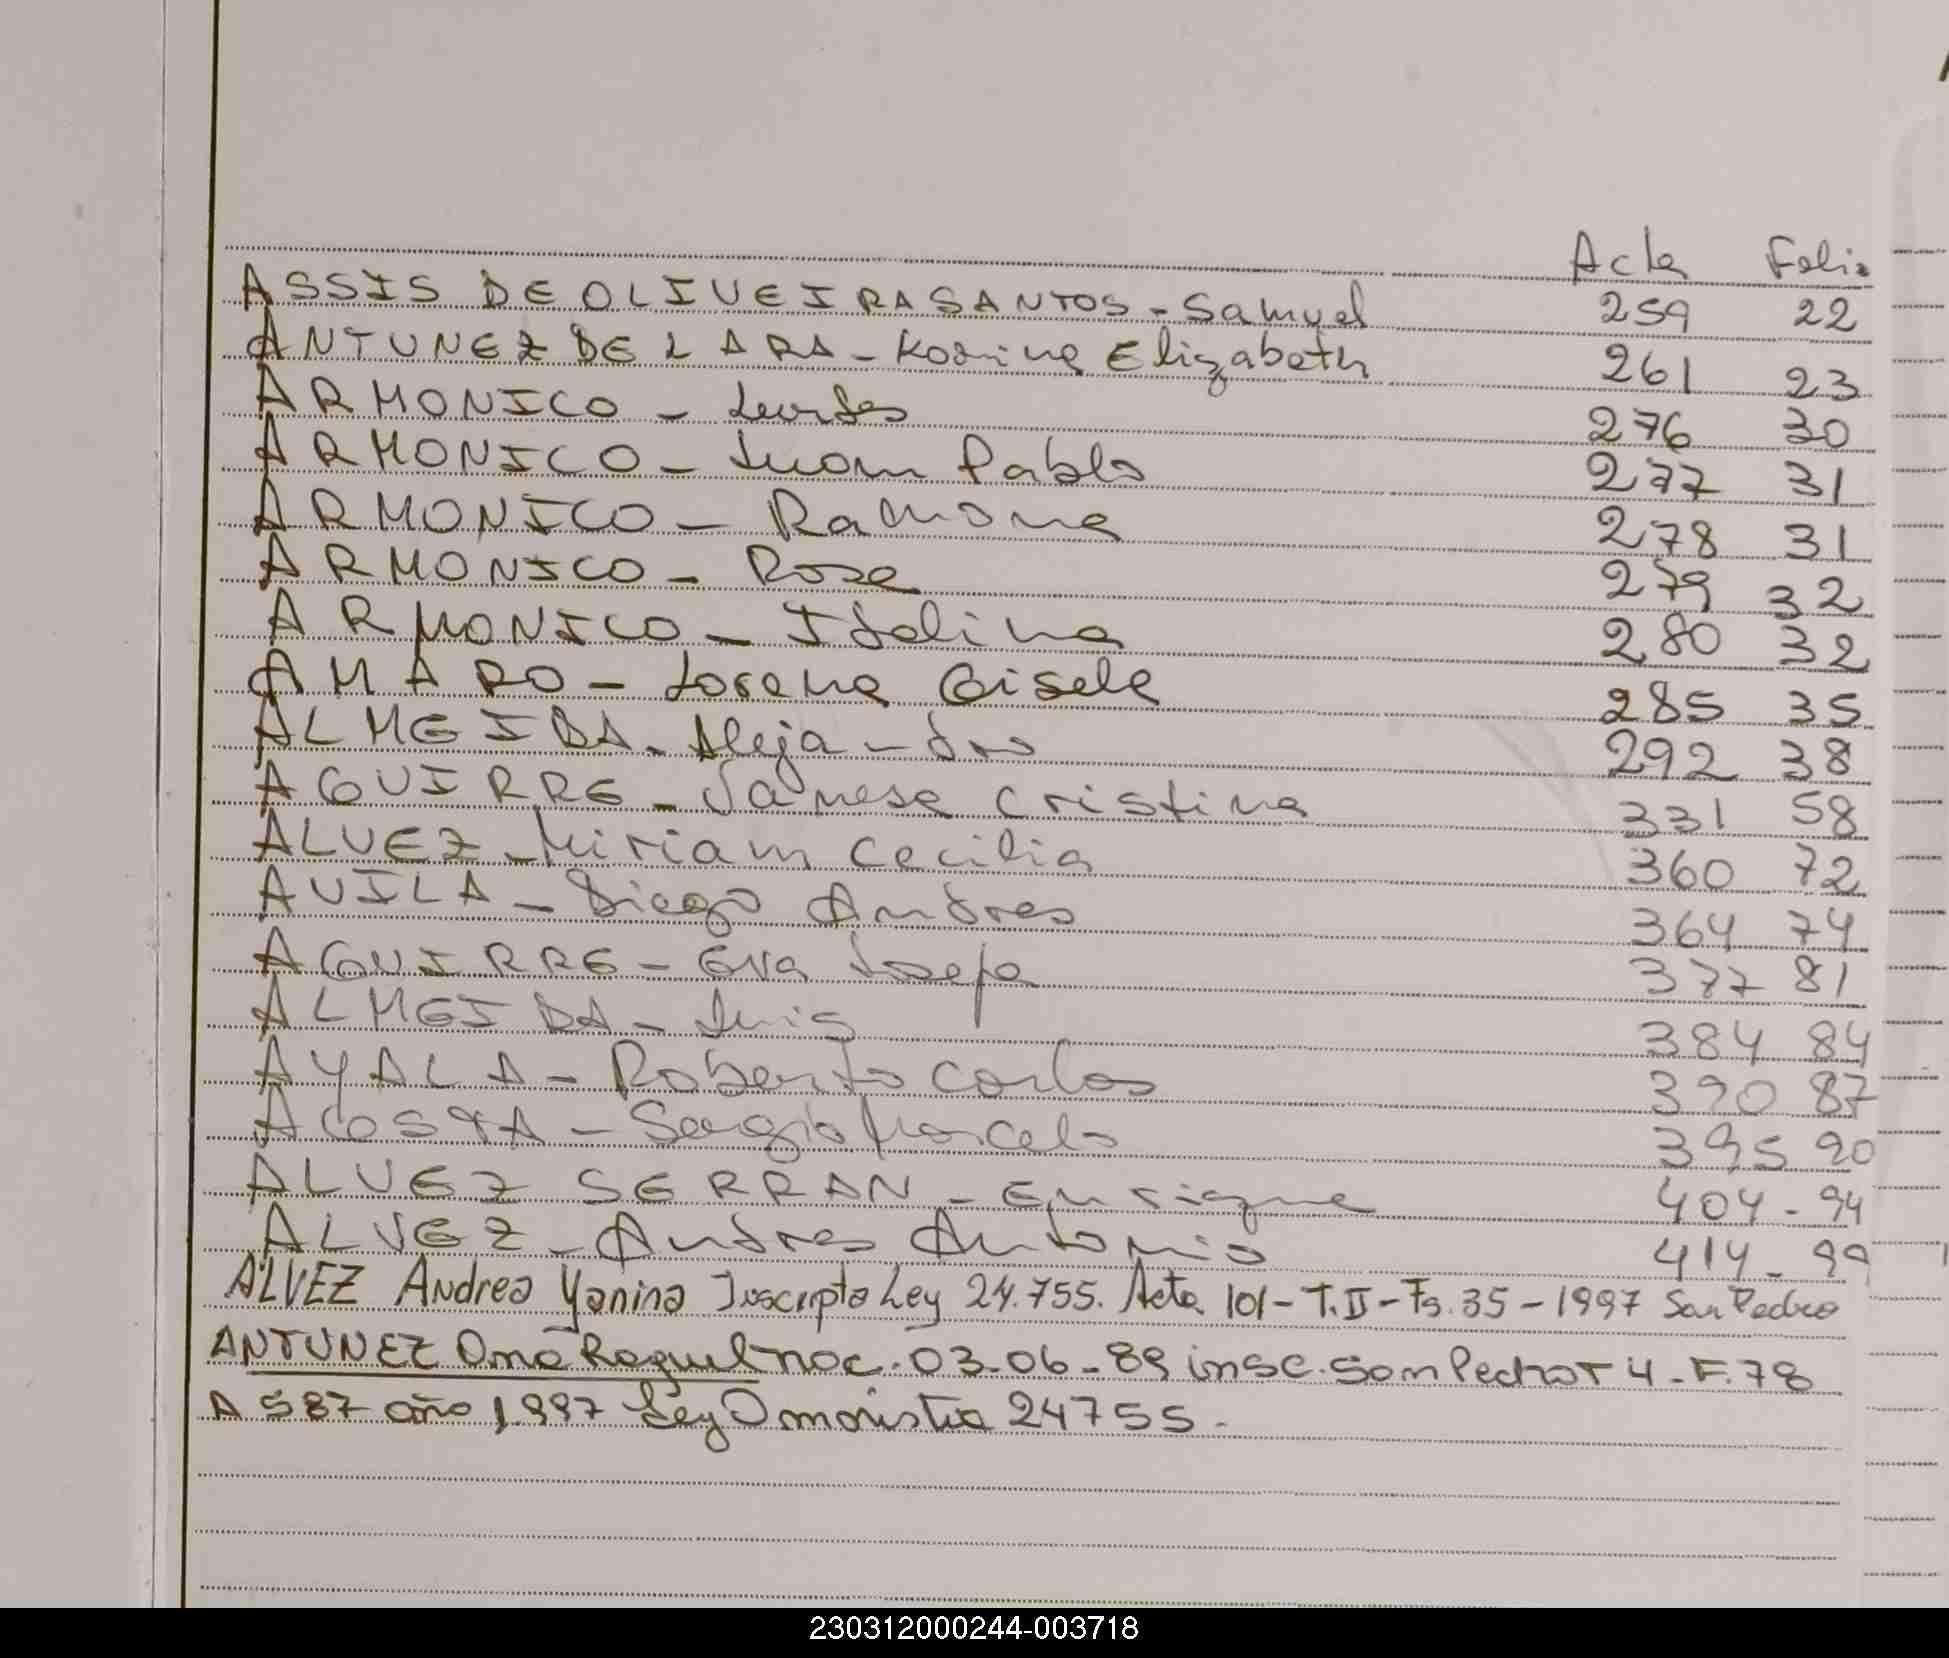 Acta Folio
ASSIS DE OLIVEIRA SANTOS - Samuel 259 22
ANTUNEZ DE LARA - Korina Elizabeth 261 23
ARMONICO - Lurdes 276 30
ARMONICO - Juan Pablo 277 31
ARMONICO - Ramona 278 31
ARMONICO - Rosa 279 32
ARMONICO - Idalina 280 32
AMARO - Lorena Gisele 285 35
ALMEIDA - Alejandro 292 38
AGUIRRE - Vanesa Cristina 331 58
ALVEZ - Miriam Cecilia 360 72
AVILA - Diego Andres 364 74
AGUIRRE - Eva Josefa 377 81
ALMEIDA - Luis 384 84
AYALA - Roberto Carlos 390 87
ACOSTA - Sergio Marcelo 395 90
ALVEZ SERRAN - Enrique 404 - 94
ALVEZ - Andres Antonio 414 - 99
ALVEZ Andrea Yanina Inscripta Ley 24.755. Acta 101 - T. II - Fs. 35 - 1997 San Pedro
ANTUNEZ Ana Raquel nac. 03-06-89 insc. San Pedro T 4 - F. 78
A 587 año 1.997 Ley Amnistia 24755 -
230312000244-003718